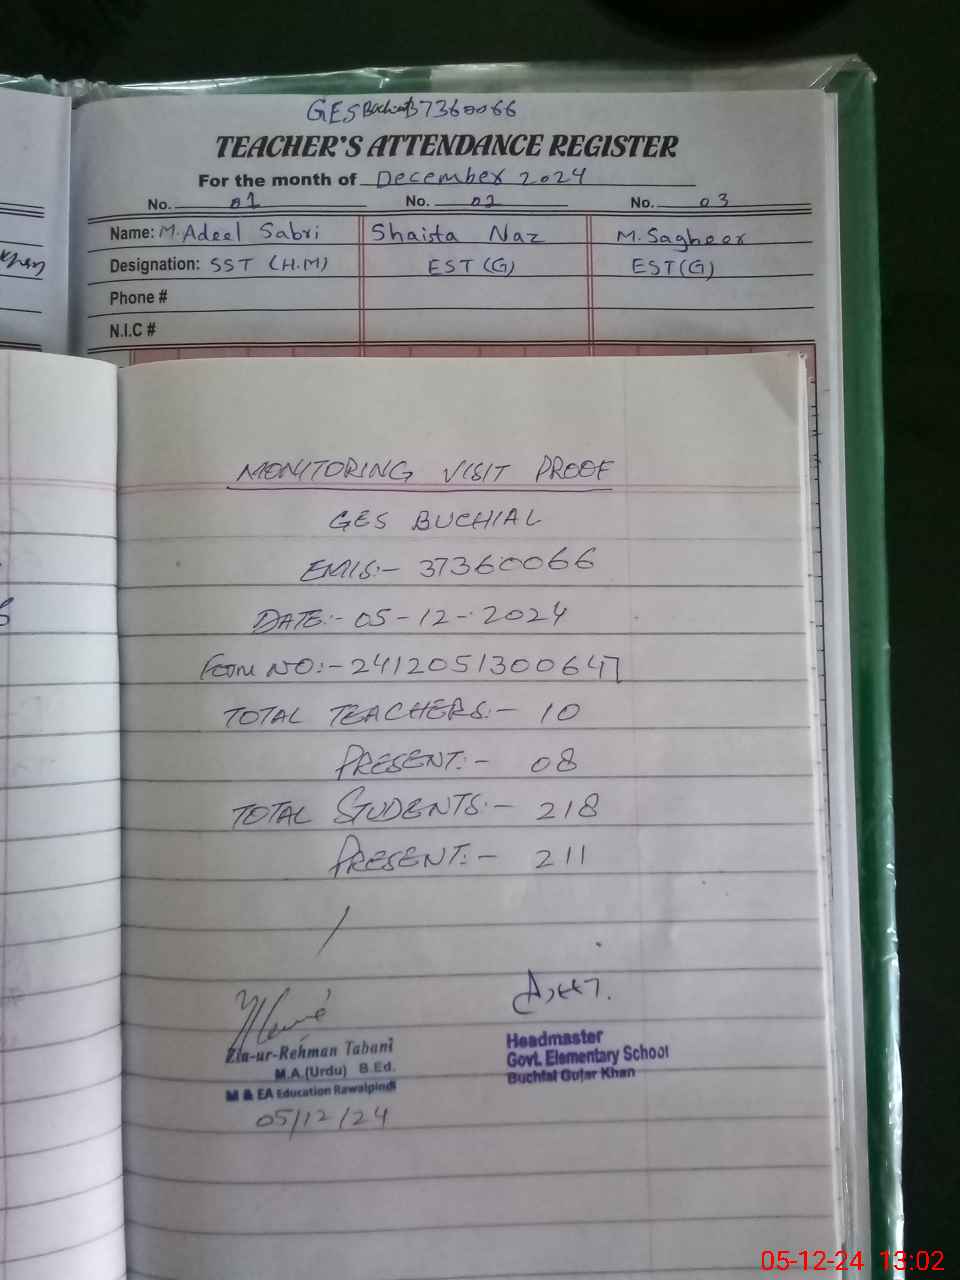 GES Buchial 37360066
TEACHER'S ATTENDANCE REGISTER
For the month of December 2024
No. 01 No. 02 No. 03
Name: M. Adeel Sabri Shaista Naz M. Sagheer
Designation: SST (H.M) EST (G) EST (G)
Phone #
N.I.C #
MONITORING VISIT PROOF
GES BUCHIAL
EMIS:- 37360066
DATE:- 05-12-2024
FORM NO:- 2412051300647
TOTAL TEACHERS:- 10
PRESENT:- 08
TOTAL STUDENTS:- 218
PRESENT:- 211
Zia-ur-Rehman Tabani
M.A.(Urdu) B.Ed.
M & EA Education Rawalpindi
05/12/24
Headmaster
Govt. Elementary School
Buchial Gujar Khan
05-12-24 13:02